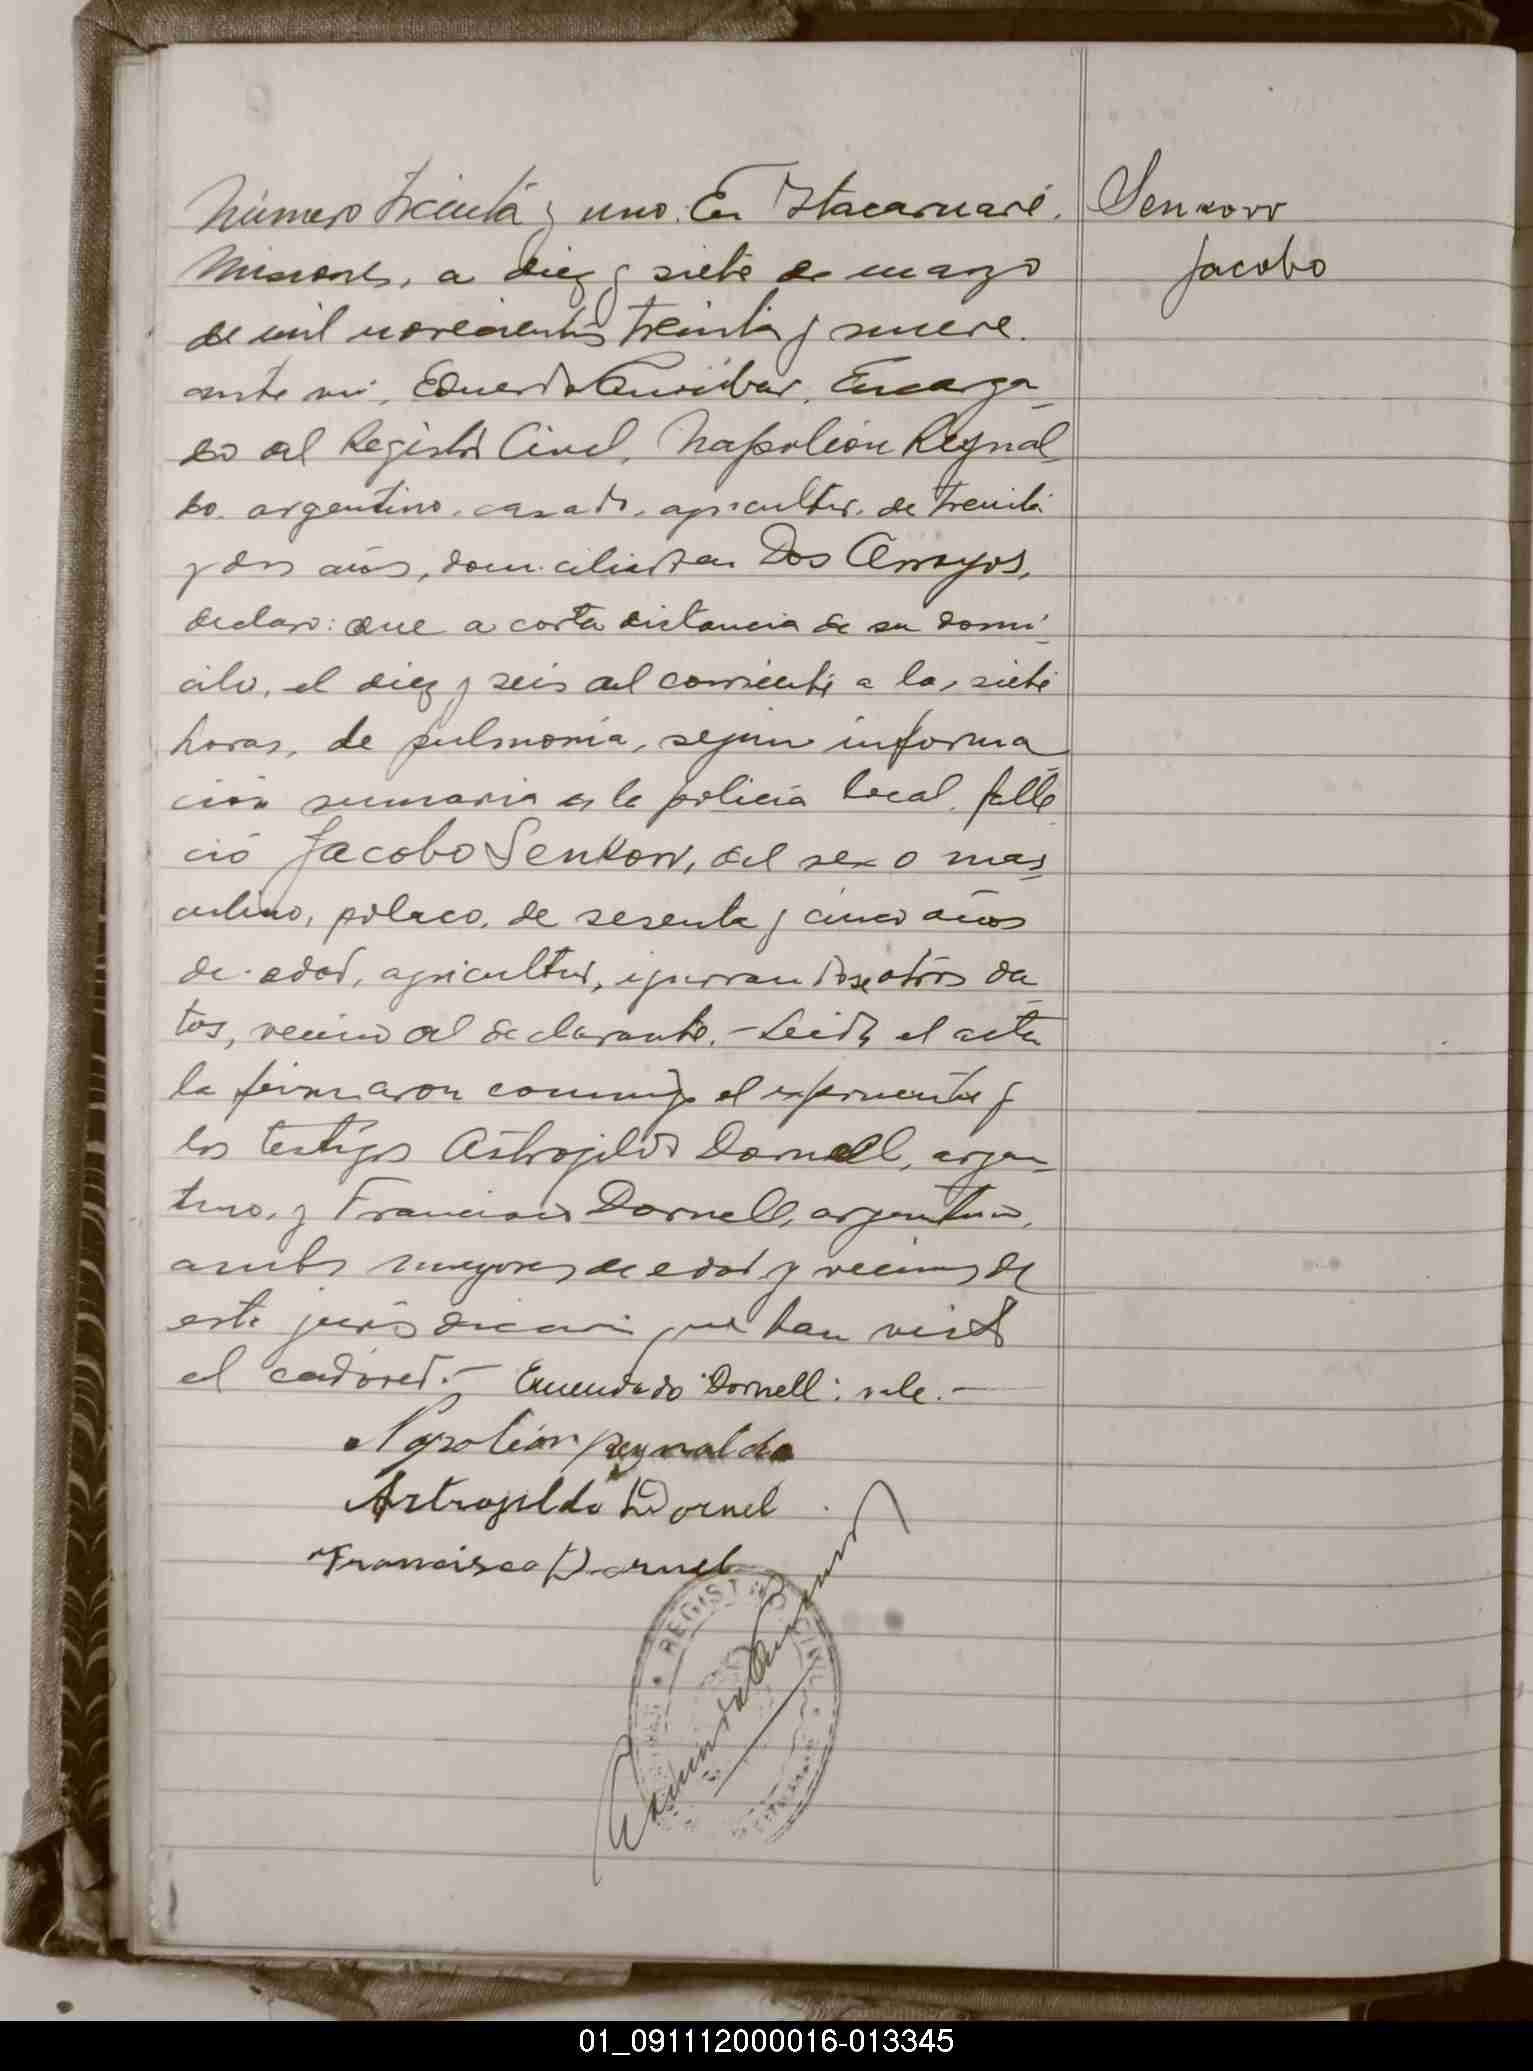 Número treinta y uno. En Itacaruaré,
Misiones, a diez y siete de marzo
de mil novecientos treinta y nueve.
ante mi, Eduardo Encarga-
do del Registro Civil, Napoleón Reynal-
do, argentino, casado, agricultor, de treinta
y dos años, domiciliado en Dos Arroyos,
declaro: que a corta distancia de su domi-
cilio, el diez y seis del corriente a las siete
horas, de pulmonía, según informa-
ción sumaria de la policia local, falle-
ció Jacobo Senkow, del sexo mas-
culino, polaco, de sesenta y cinco años
de edad, agricultor, ignorandose otros da-
tos, vecino del declarante. - Leida el acta
la firmaron conmigo el exponente y
los testigos Astrogildo Dornell, argen-
tino, y Francisco Dornell, argentino,
ambos mayores de edad y vecinos de
esta jurisdiccion que han visto
el cadaver. - Enmendado "Dornell": vale. -
Napoleón Reynaldo
Astrogildo Dornel
Francisco Dornel
REGISTRO CIVIL
Senkow
Jacobo
01_091112000016-013345